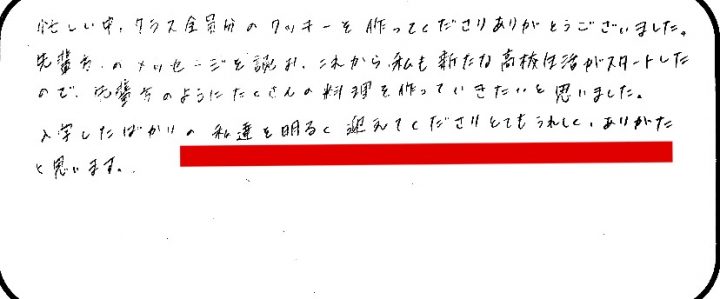 忙しい中、クラス全員分のクッキーを作ってくださりありがとうございました。
先輩方のメッセージを読み、これから私も新たな高校生活がスタートした
ので、先輩方のようにたくさんの料理を作っていきたいと思いました。
入学したばかりの私達を明るく迎えてくださりとてもうれしく、ありがた
く思います。